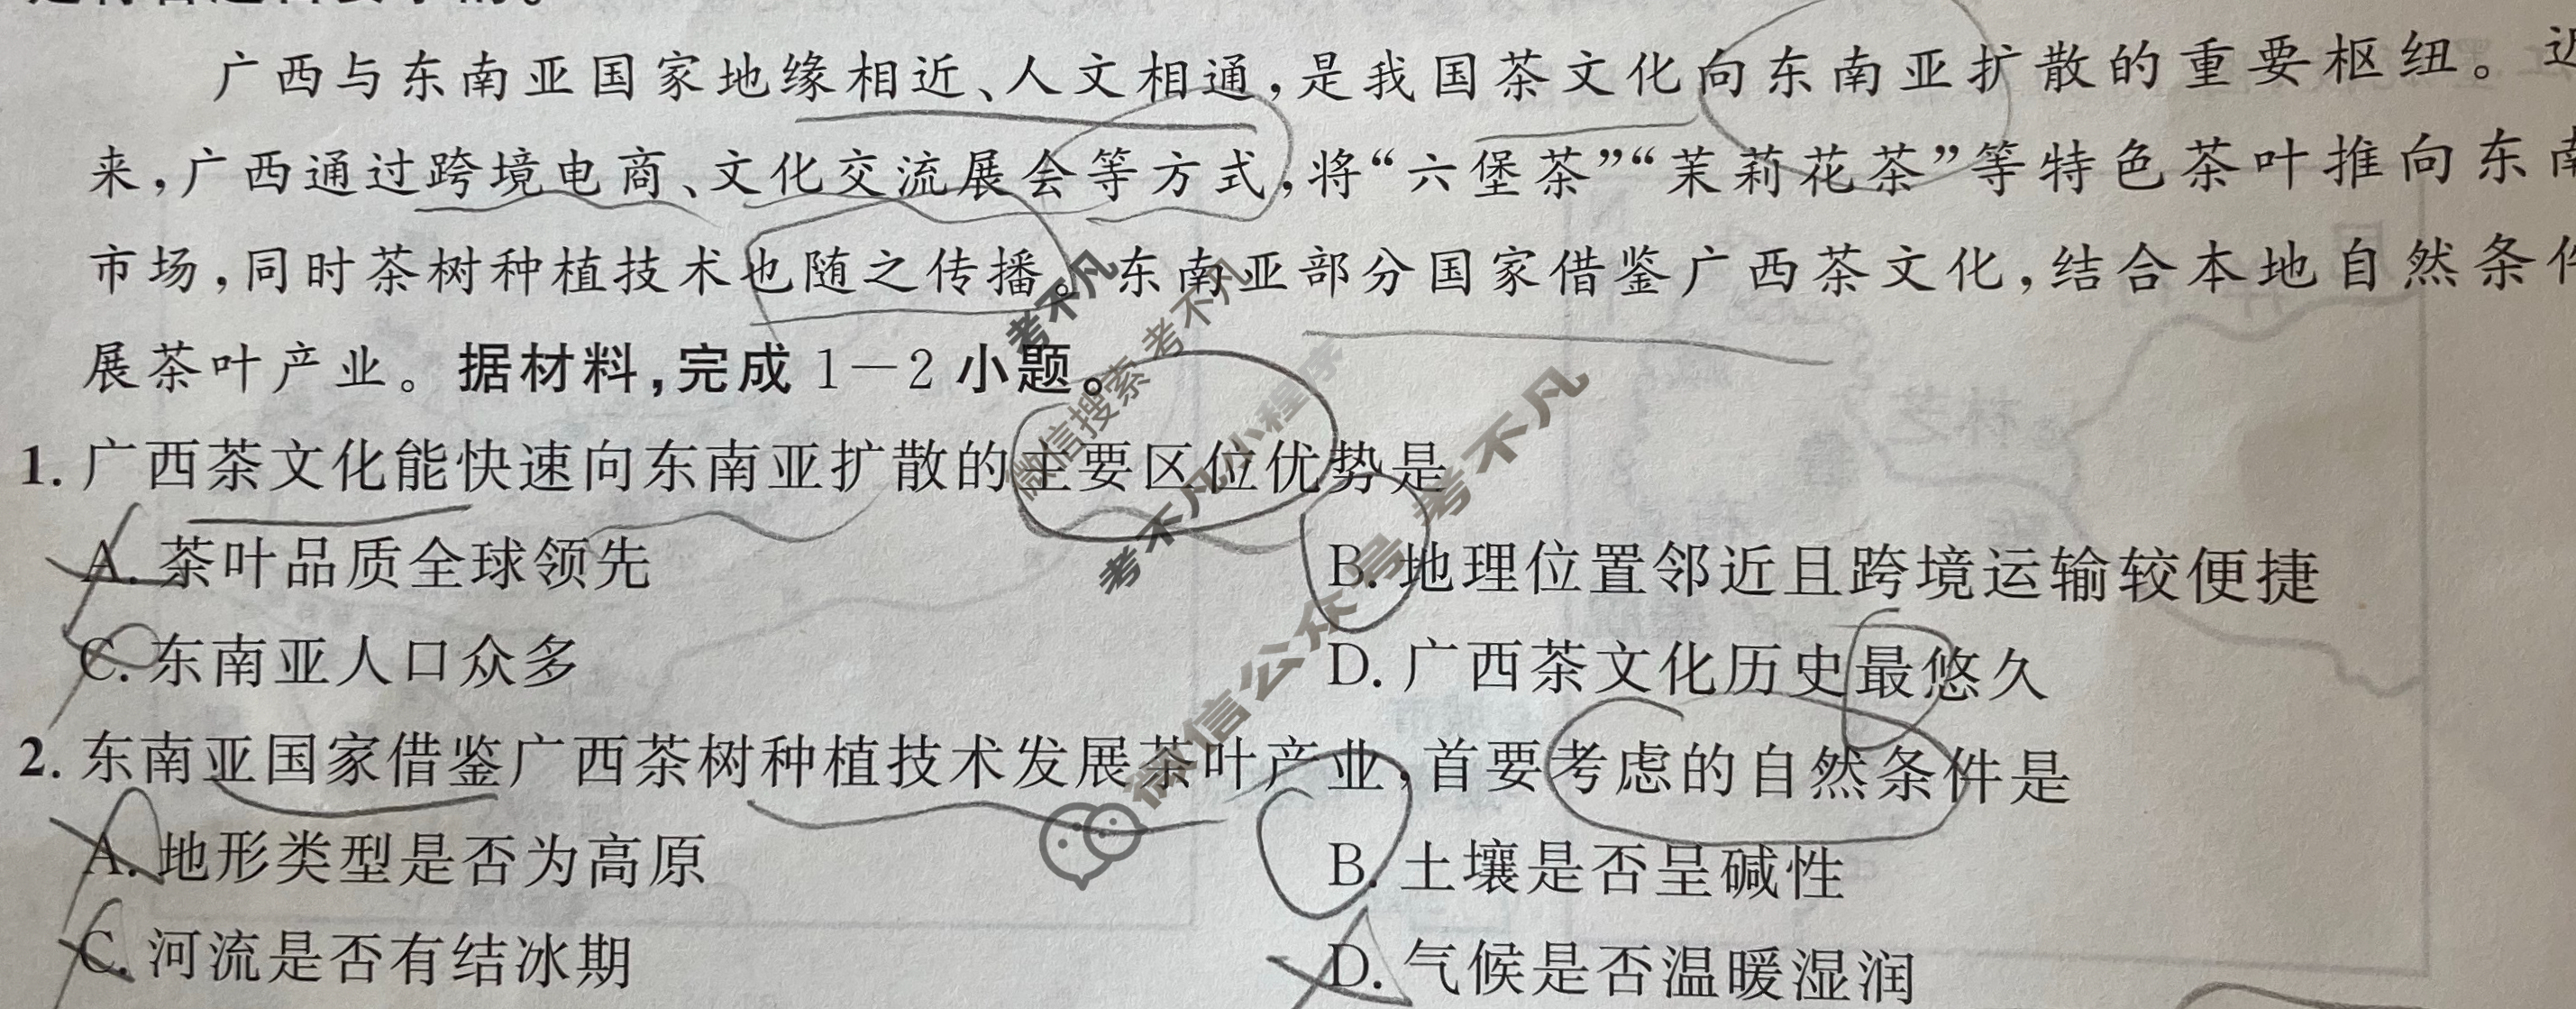 广西与东南亚国家地缘相近、人文相通,是我国茶文化向东南亚扩散的重要枢纽。近
来,广西通过跨境电商、文化交流展会等方式,将“六堡茶”“茉莉花茶”等特色茶叶推向东南
市场,同时茶树种植技术也随之传播。东南亚部分国家借鉴广西茶文化,结合本地自然条件
展茶叶产业。据材料,完成1—2小题。
1. 广西茶文化能快速向东南亚扩散的主要区位优势是
A. 茶叶品质全球领先
B. 地理位置邻近且跨境运输较便捷
C. 东南亚人口众多
D. 广西茶文化历史最悠久
2. 东南亚国家借鉴广西茶树种植技术发展茶叶产业,首要考虑的自然条件是
A. 地形类型是否为高原
B. 土壤是否呈碱性
C. 河流是否有结冰期
D. 气候是否温暖湿润
考不凡
微信搜索 考不凡
考不凡小程序
微信公众号 考不凡